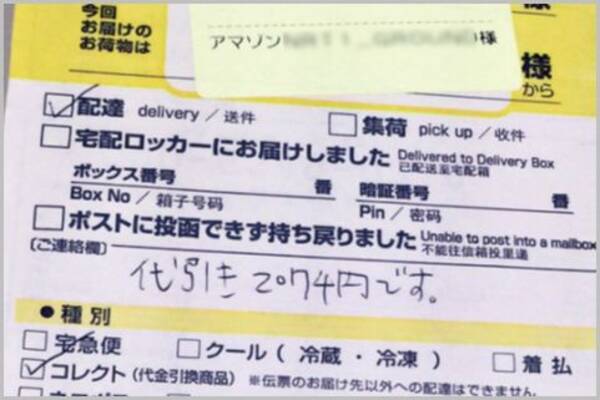 今回
お届けの
お荷物は
様
アマゾン 様
様
から
配達 delivery / 送件
集荷 pick up / 收件
宅配ロッカーにお届けしました Delivered to Delivery Box
已配送至宅配箱
ボックス番号 番 暗証番号 番
Box No / 箱子号码 Pin / 密码
ポストに投函できず持ち戻りました Unable to post into a mailbox
不能往信箱投里递
(ご連絡欄)
代引き2074円です。
●種別
宅急便 クール(冷蔵・冷凍) 着払
コレクト(代金引換商品) ※伝票のお届け先以外への配達はできません